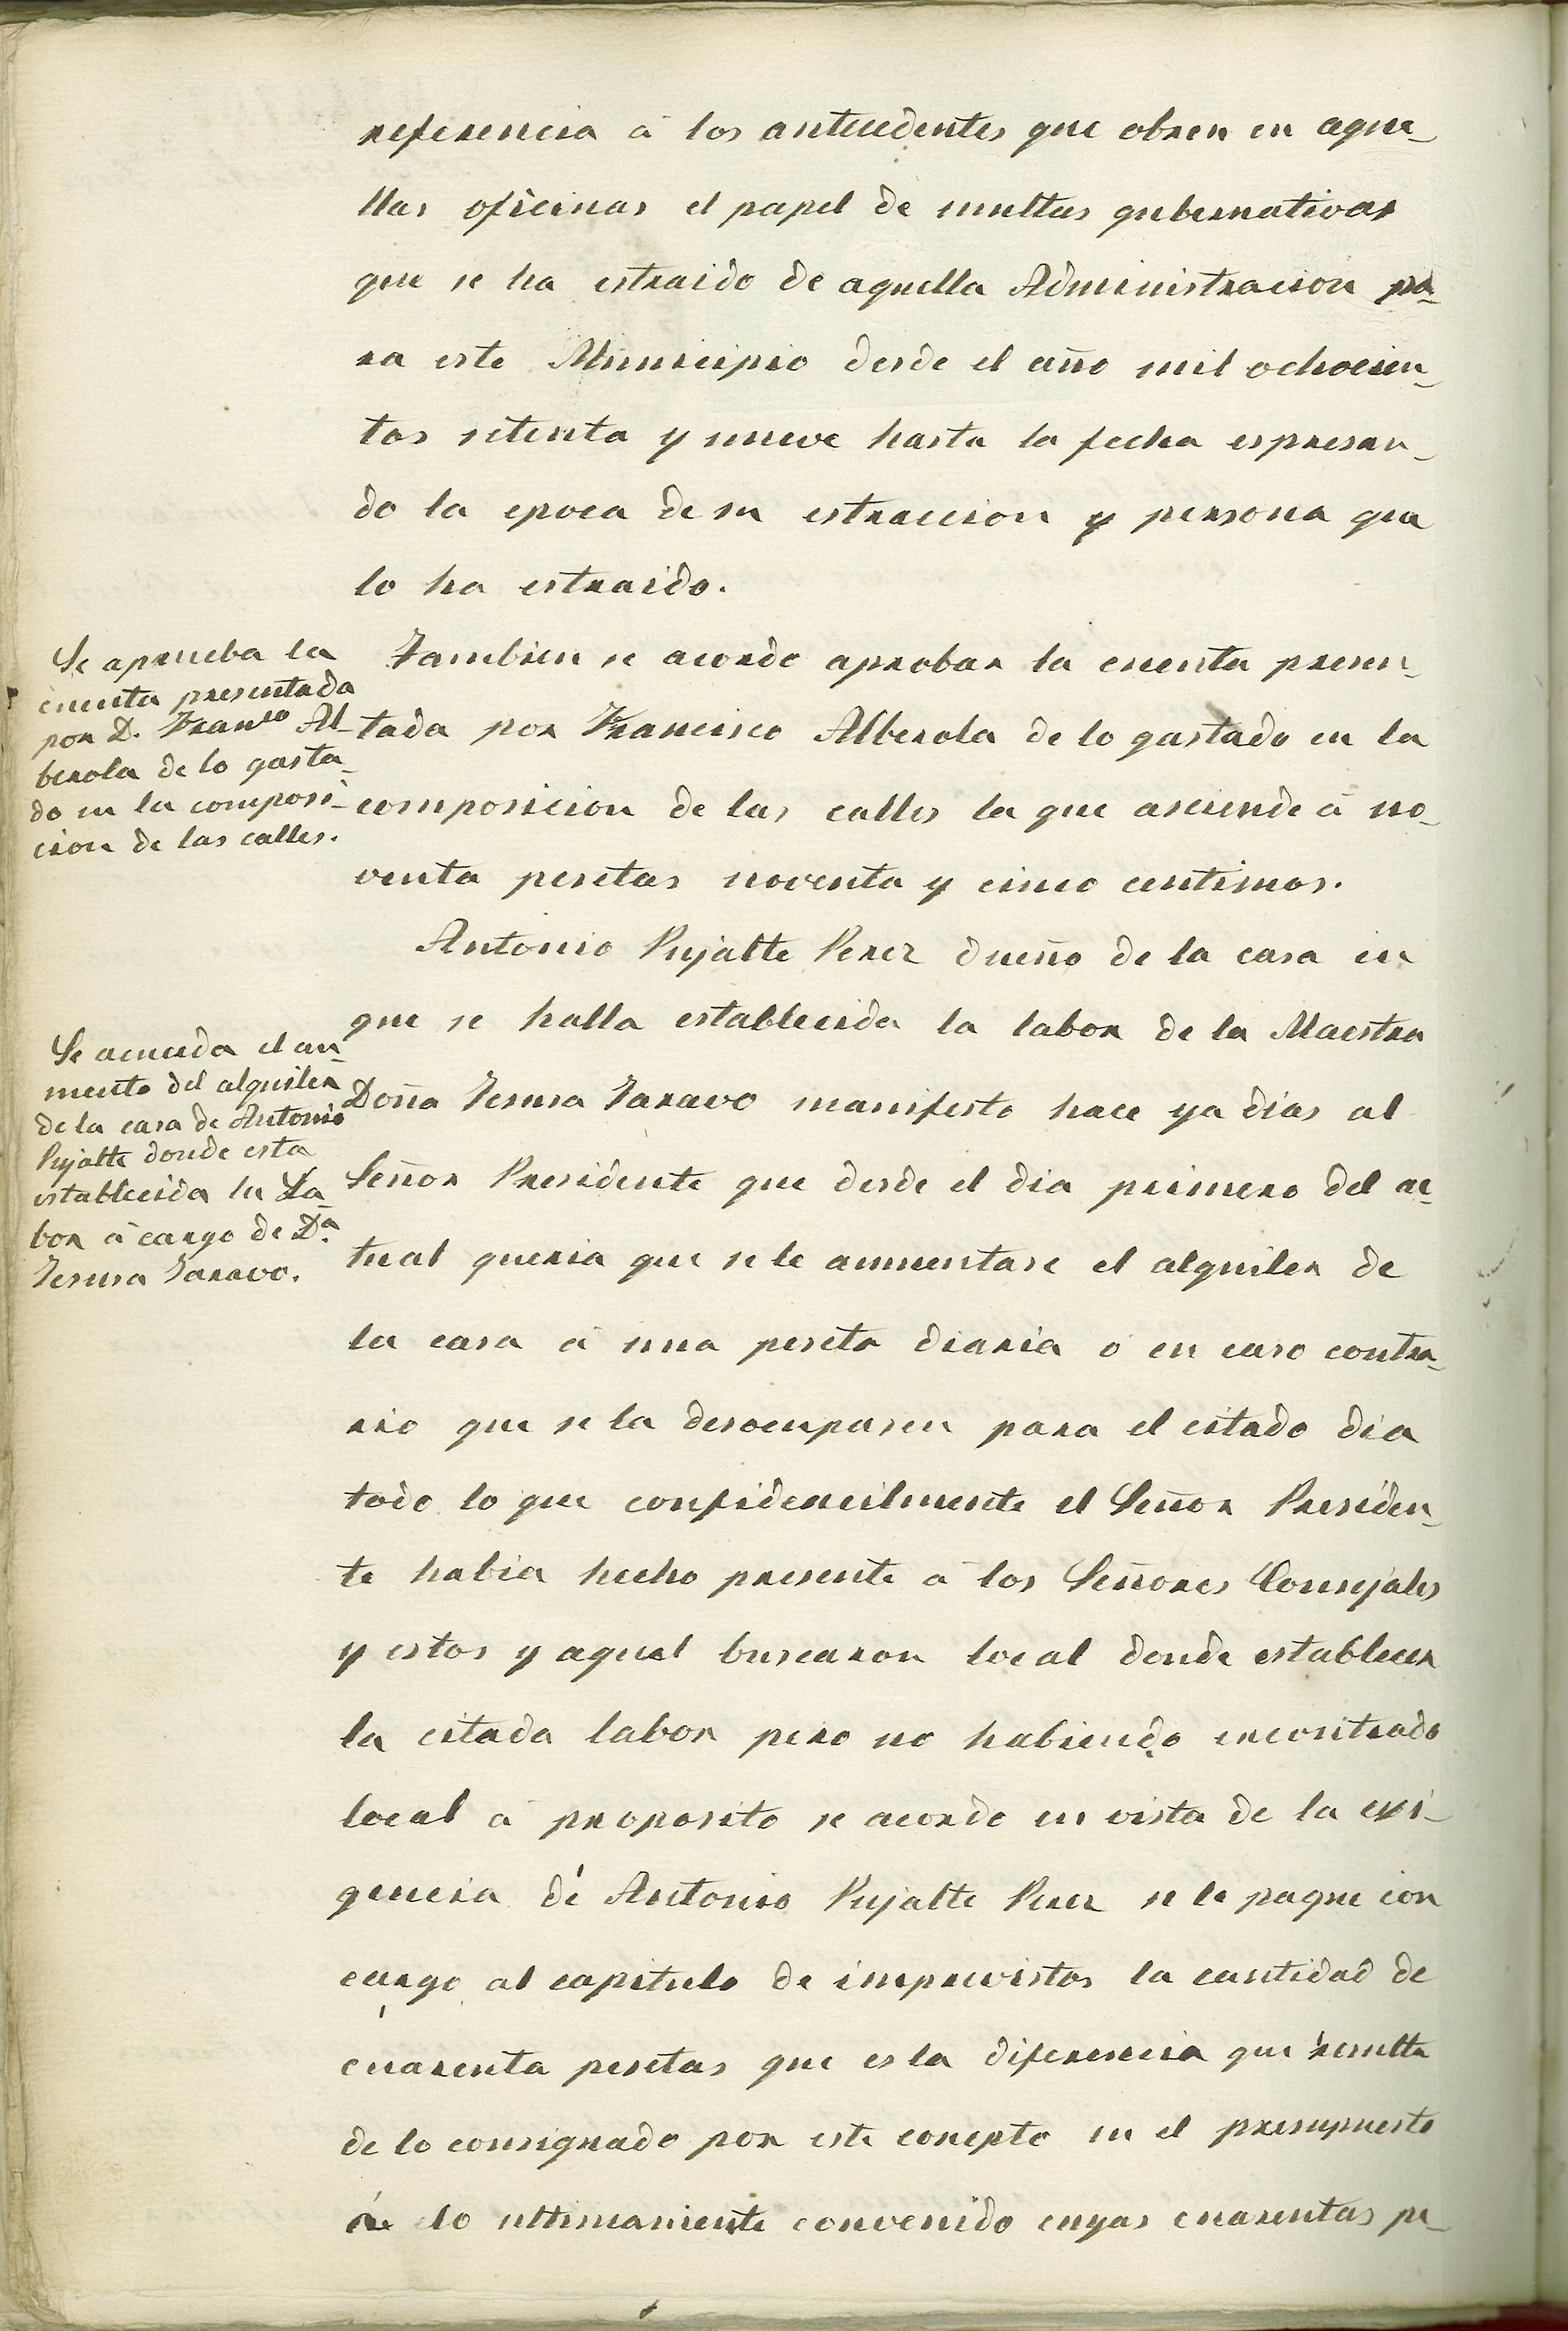 referencia á los antecedentes que obren en aque-
llas oficinas el papel de multas gubernativas
que se ha estraido de aquella Administracion pa-
ra este Municipio desde el año mil ochocien-
tos setenta y nueve hasta la fecha espresan-
do la epoca de su estraccion y persona que
lo ha estraido.
Se aprueba la
cuenta presentada
por D. Franco Al-
berola de lo gasta-
do en la composi-
cion de las calles.
Tambien se acordo aprobar la cuenta presen-
tada por Francisco Alberola de lo gastado en la
composicion de las calles la que asciende á no-
venta pesetas noventa y cinco centimos.
Antonio Pujalte Perez dueño de la casa en
que se halla establecida la labor de la Maestra
Se acuerda el au-
mento del alquiler
de la casa de Antonio
Pujalte donde esta
establecida la La-
bor á cargo de Da.
Teresa Taravo.
Doña Teresa Taravo manifesto hace ya dias al
Señor Presidente que desde el dia primero del ac-
tual queria que se le aumentase el alquiler de
la casa á una peseta diaria o en caso contra-
rio que se la desocupasen para el citado dia
todo lo que confidencilmente el Señor Presiden-
te habia hecho presente á los Señores Consejales
y estos y aquel buscaron local donde establecer
la citada labor pero no habiendo encontrado
local á proposito se acordo en vista de la exi-
gencia de Antonio Pujalte Perez se le pague con
cargo al capitulo de imprevistos la cantidad de
cuarenta pesetas que es la diferencia que resulta
de lo consignado por este conepto en el presupuesto
á lo ultimamente convenido cuyas cuarentas pe-